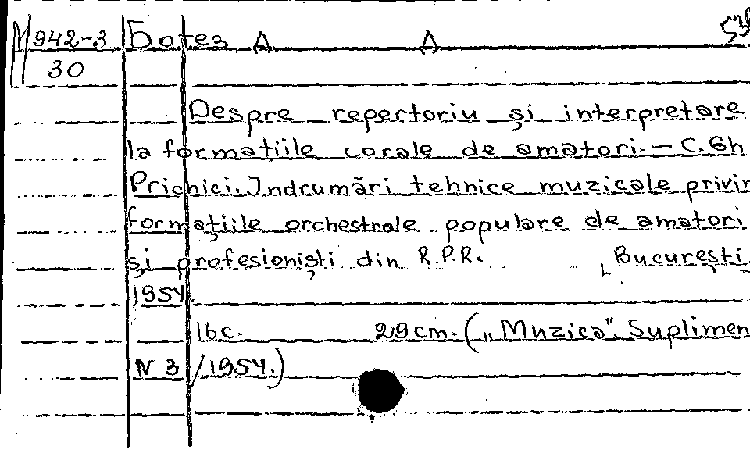 M 942-3 Botez A A
30
Despre repertoriu și interpretare
la formațiile corale de amatori. — C. Gh
Prichici. Indrumări tehnice muzicale privin
formațiile orchestrale populare de amatori
și profesioniști din R.P.R. , București
1954
16 c. 29 cm. („Muzica" Suplimen
N 3 /1954.)